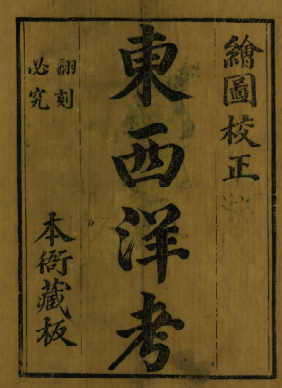 繪圖校正
東西洋考
翻刻
必究
本衙藏板